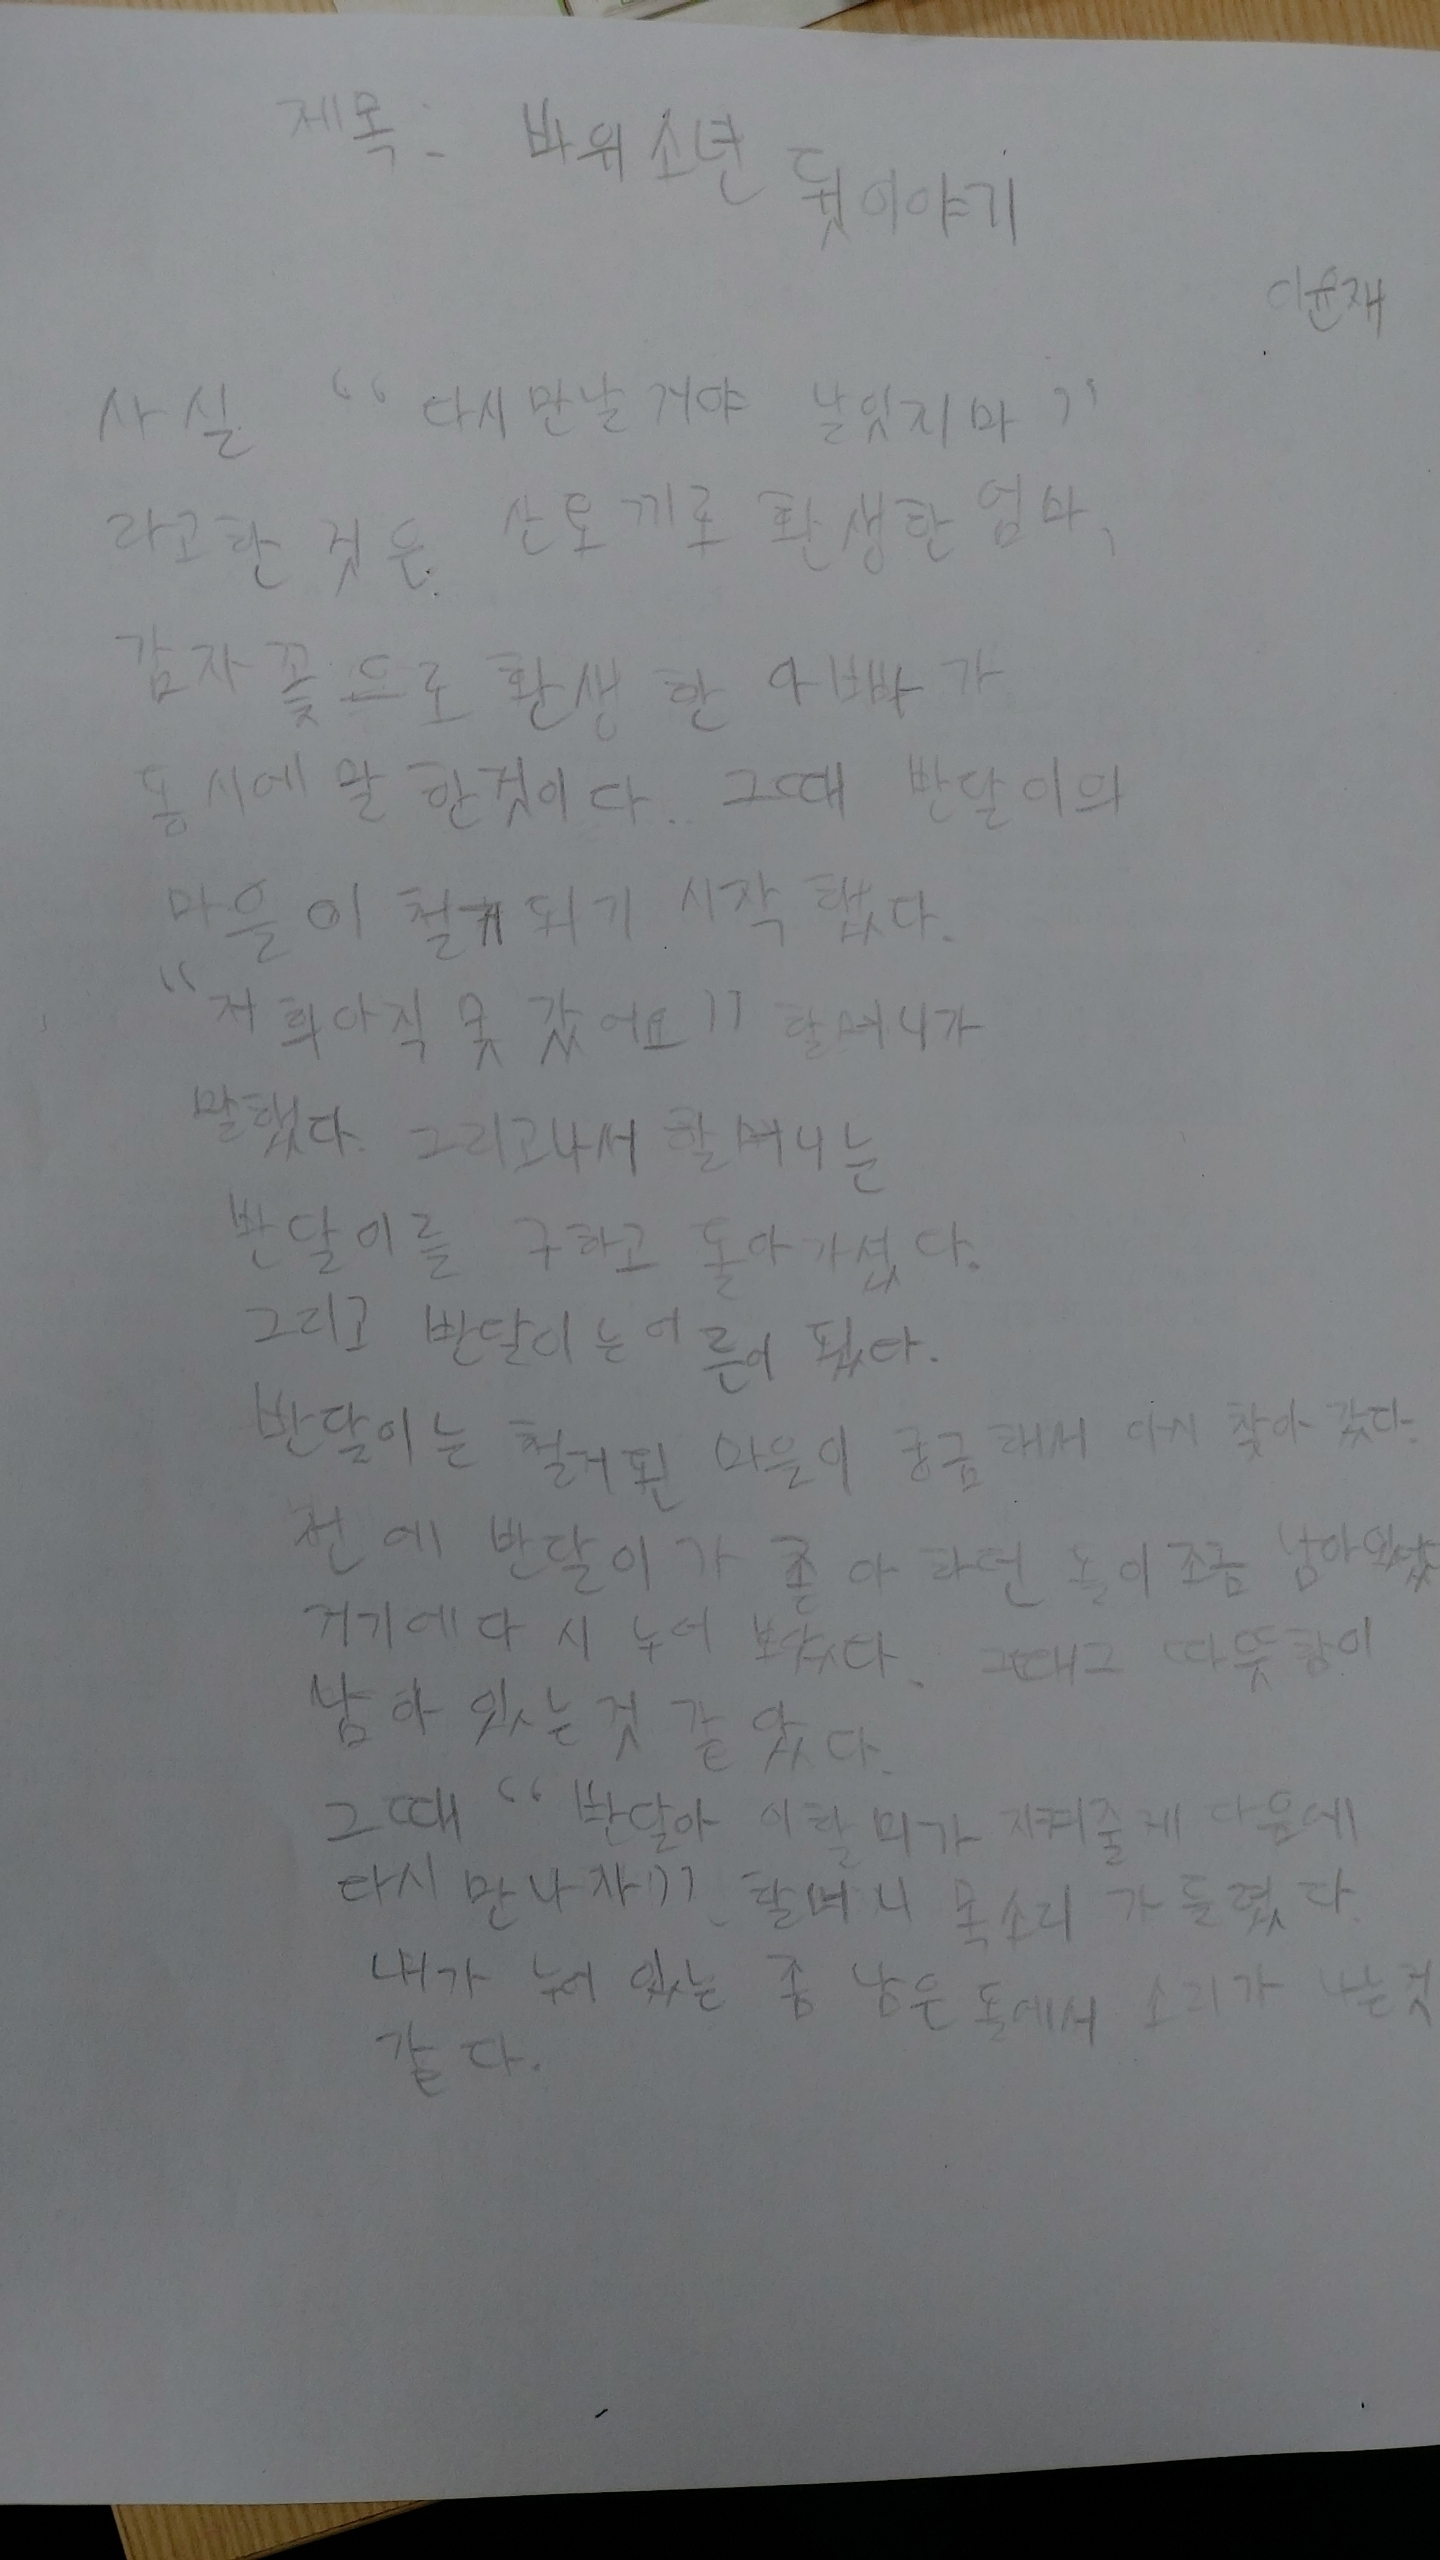 제목: 바위소년 뒷이야기
이윤재
사실 “다시만날거야 날잊지마”
라고한 것은 산토끼로 환생한 엄마,
감자꽃으로 환생한 아빠가
동시에 말한것이다. 그때 반달이의
마을이 철거되기 시작했다.
“저희아직 못 갔어요” 할머니가
말했다. 그리고나서 할머니는
반달이를 구하고 돌아가셨다.
그리고 반달이는 어른이 됐다.
반달이는 철거된 마을이 궁금해서 다시 찾아 갔다.
전에 반달이가 좋아하던 돌이조금 남아있었
거기에다시 누어 보았다. 그때그 따뜻함이
남아 있는것 같았다.
그때 “반달아 이할미가 지켜줄게 다음에
다시만나자”. 할머니 목소리가들렸다.
내가 누어있는 좀 남은 돌에서 소리가 나는것
같다.